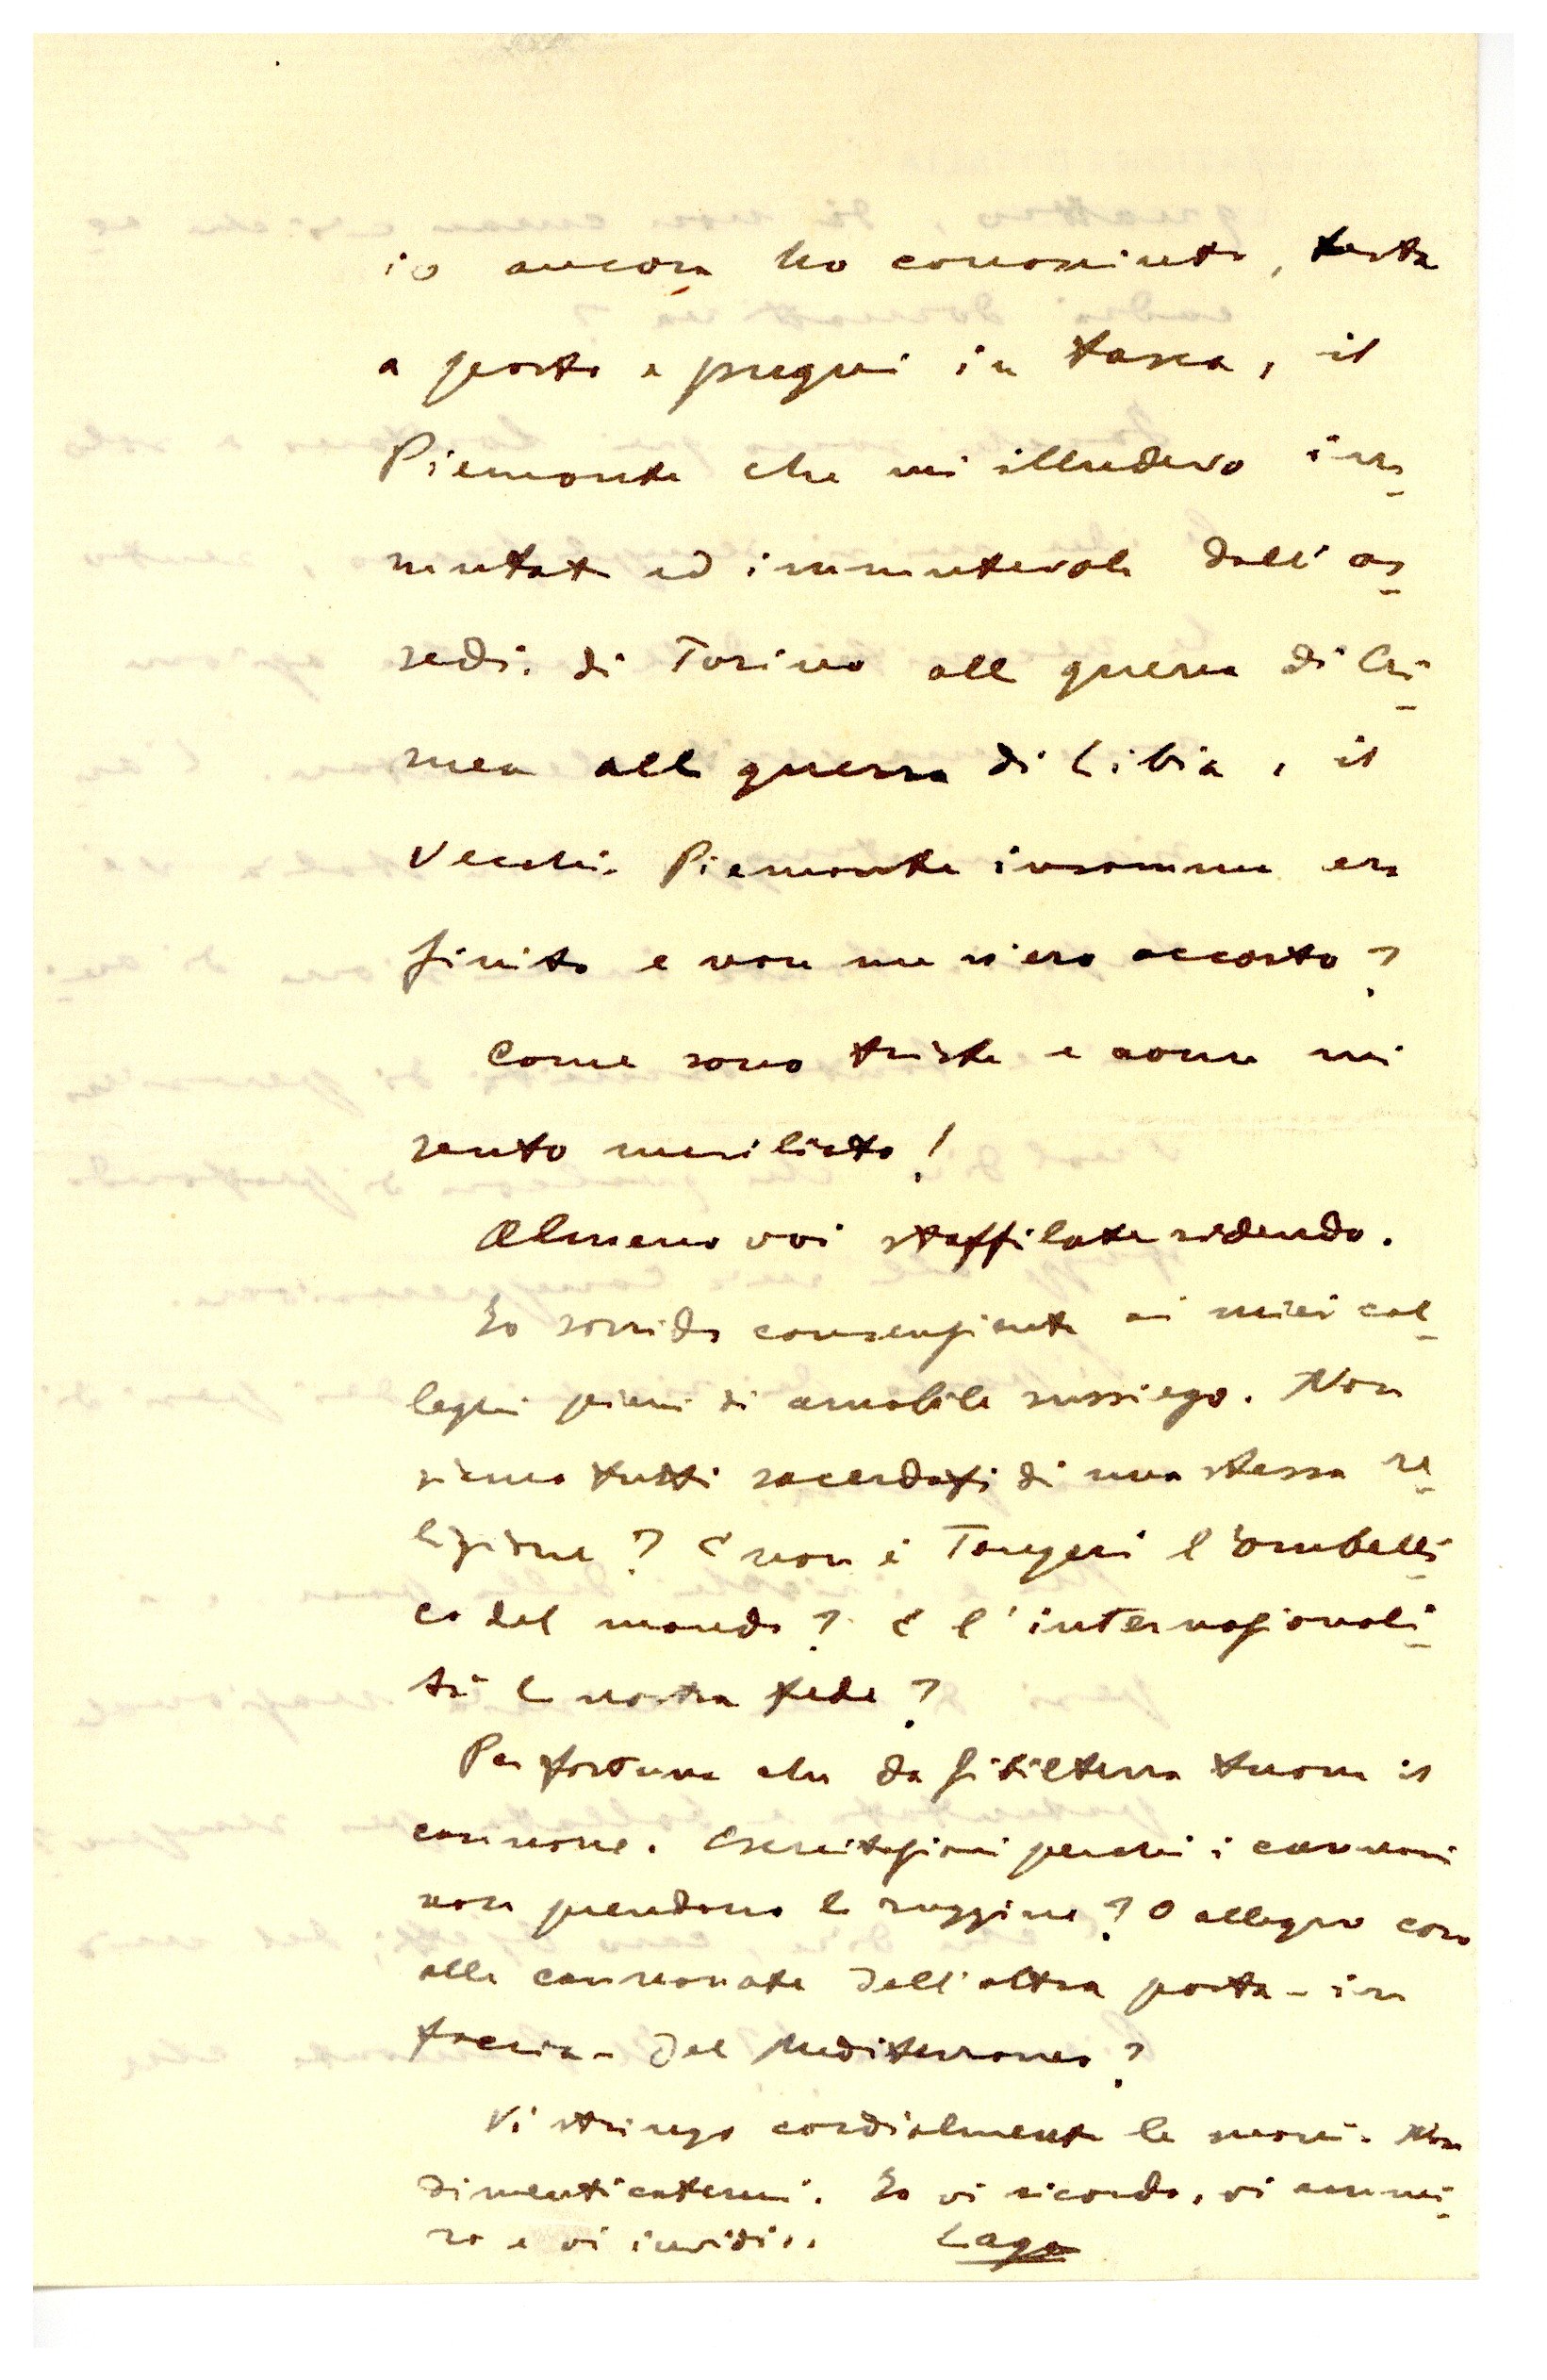 io ancora ho conosciuto, testa
a posto e pugni in tasca, il
Piemonte che mi illudevo im-
mutato ed immutevole dall'as-
sedio di Torino alla guerra di Cri-
mea alla guerra di Libia, il
Vecchio Piemonte insomma era
finito e non me n'ero accorto?
Come sono triste e come mi
sento umiliato!
Almeno voi staffilate ridendo.
Io sorrido consenziente ai miei col-
leghi pieni di amabile sussiego. Non
siamo tutti sacerdoti di una stessa re-
ligione? E non è Tangeri l'ombelli-
co del mondo? E l'internazionali-
tà la nostra fede?
Per fortuna che da Gibilterra tuona il
cannone. Esercitazioni perché i cannoni
non prendano la ruggine? O allegro coro
alle cannonate dell'altra porta - in
faccia - del Mediterraneo?
Vi stringo cordialmente la mano. Non
dimenticatemi. Io vi ricordo, vi ammi-
ro e vi invidio. Lago